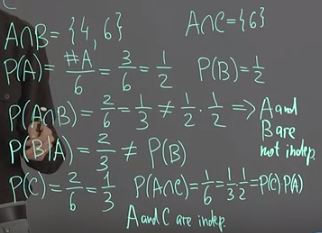 A∩B={4,6}
A∩C={6}
P(A)=#A/6=3/6=1/2
P(B)=1/2
P(A∩B)=2/6=1/3≠1/2·1/2 ⇒ A and
B are
not indep.
P(B|A)=2/3≠P(B)
P(C)=2/6=1/3
P(A∩C)=1/6=1/3 1/2=P(C)P(A)
A and C are indep.